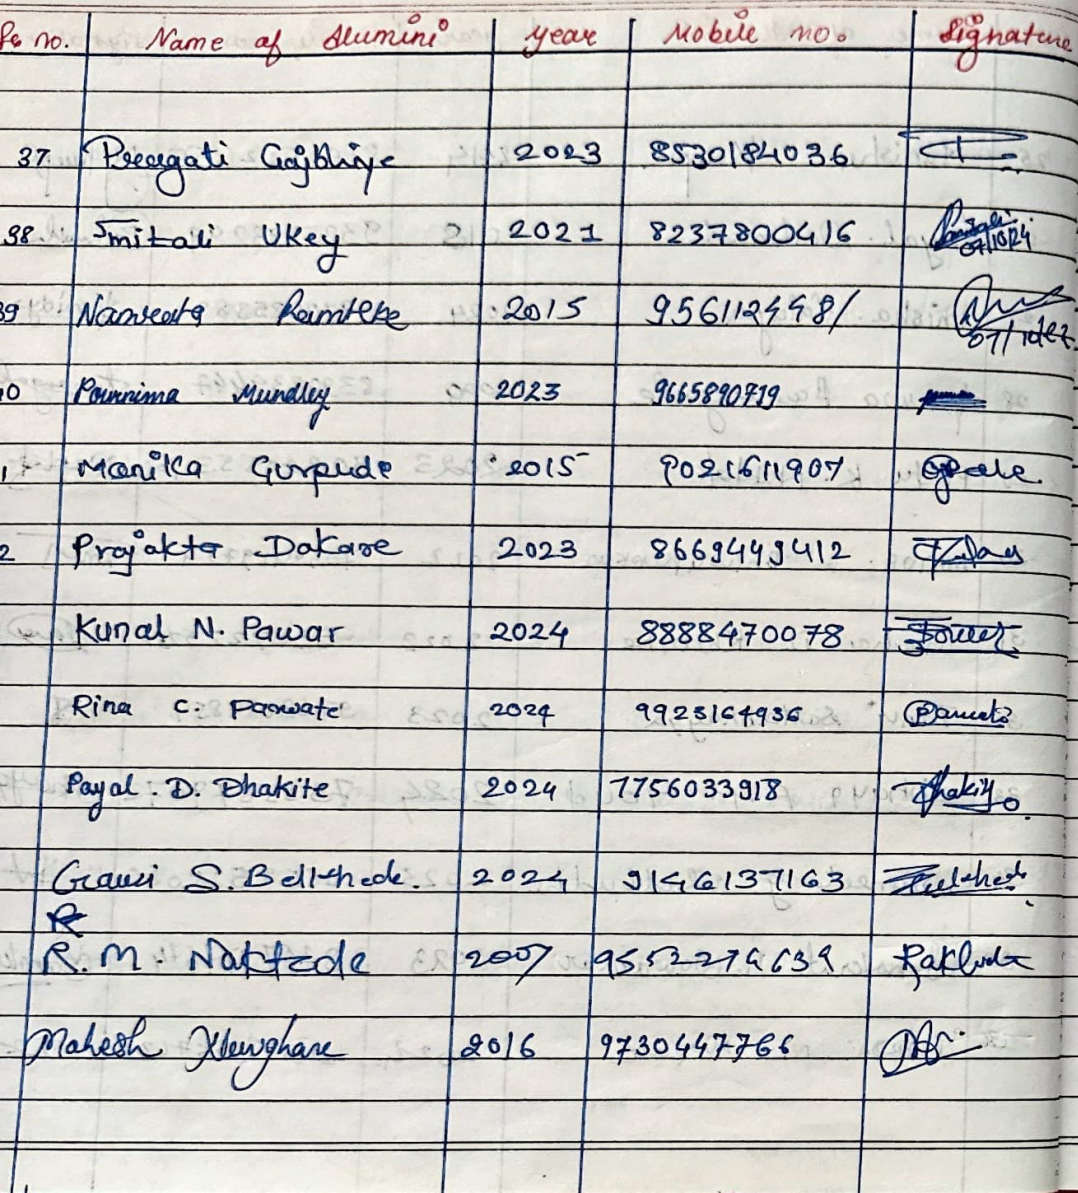 no. Name of Alumini year Mobile no. Signature
37. Preagati Gajbhiye 2023 8530184036
38. Smitali Ukey 2021 8237800416 07/10/24
39 Namrata Ramteke 2015 9561124481
Pournima Mundley 2023 9665890719
Monika Gurpude 2015 9021611907
2 Prajakta Dakare 2023 8669449412
Kunal N. Pawar 2024 8888470078
Rina C. Parwate 2024 9923164936
Payal. D. Dhakite 2024 7756033918
S. Belkhede. 2024 9146137163
R
R. M. Naktode 2007
Mahesh 2016 9730447766